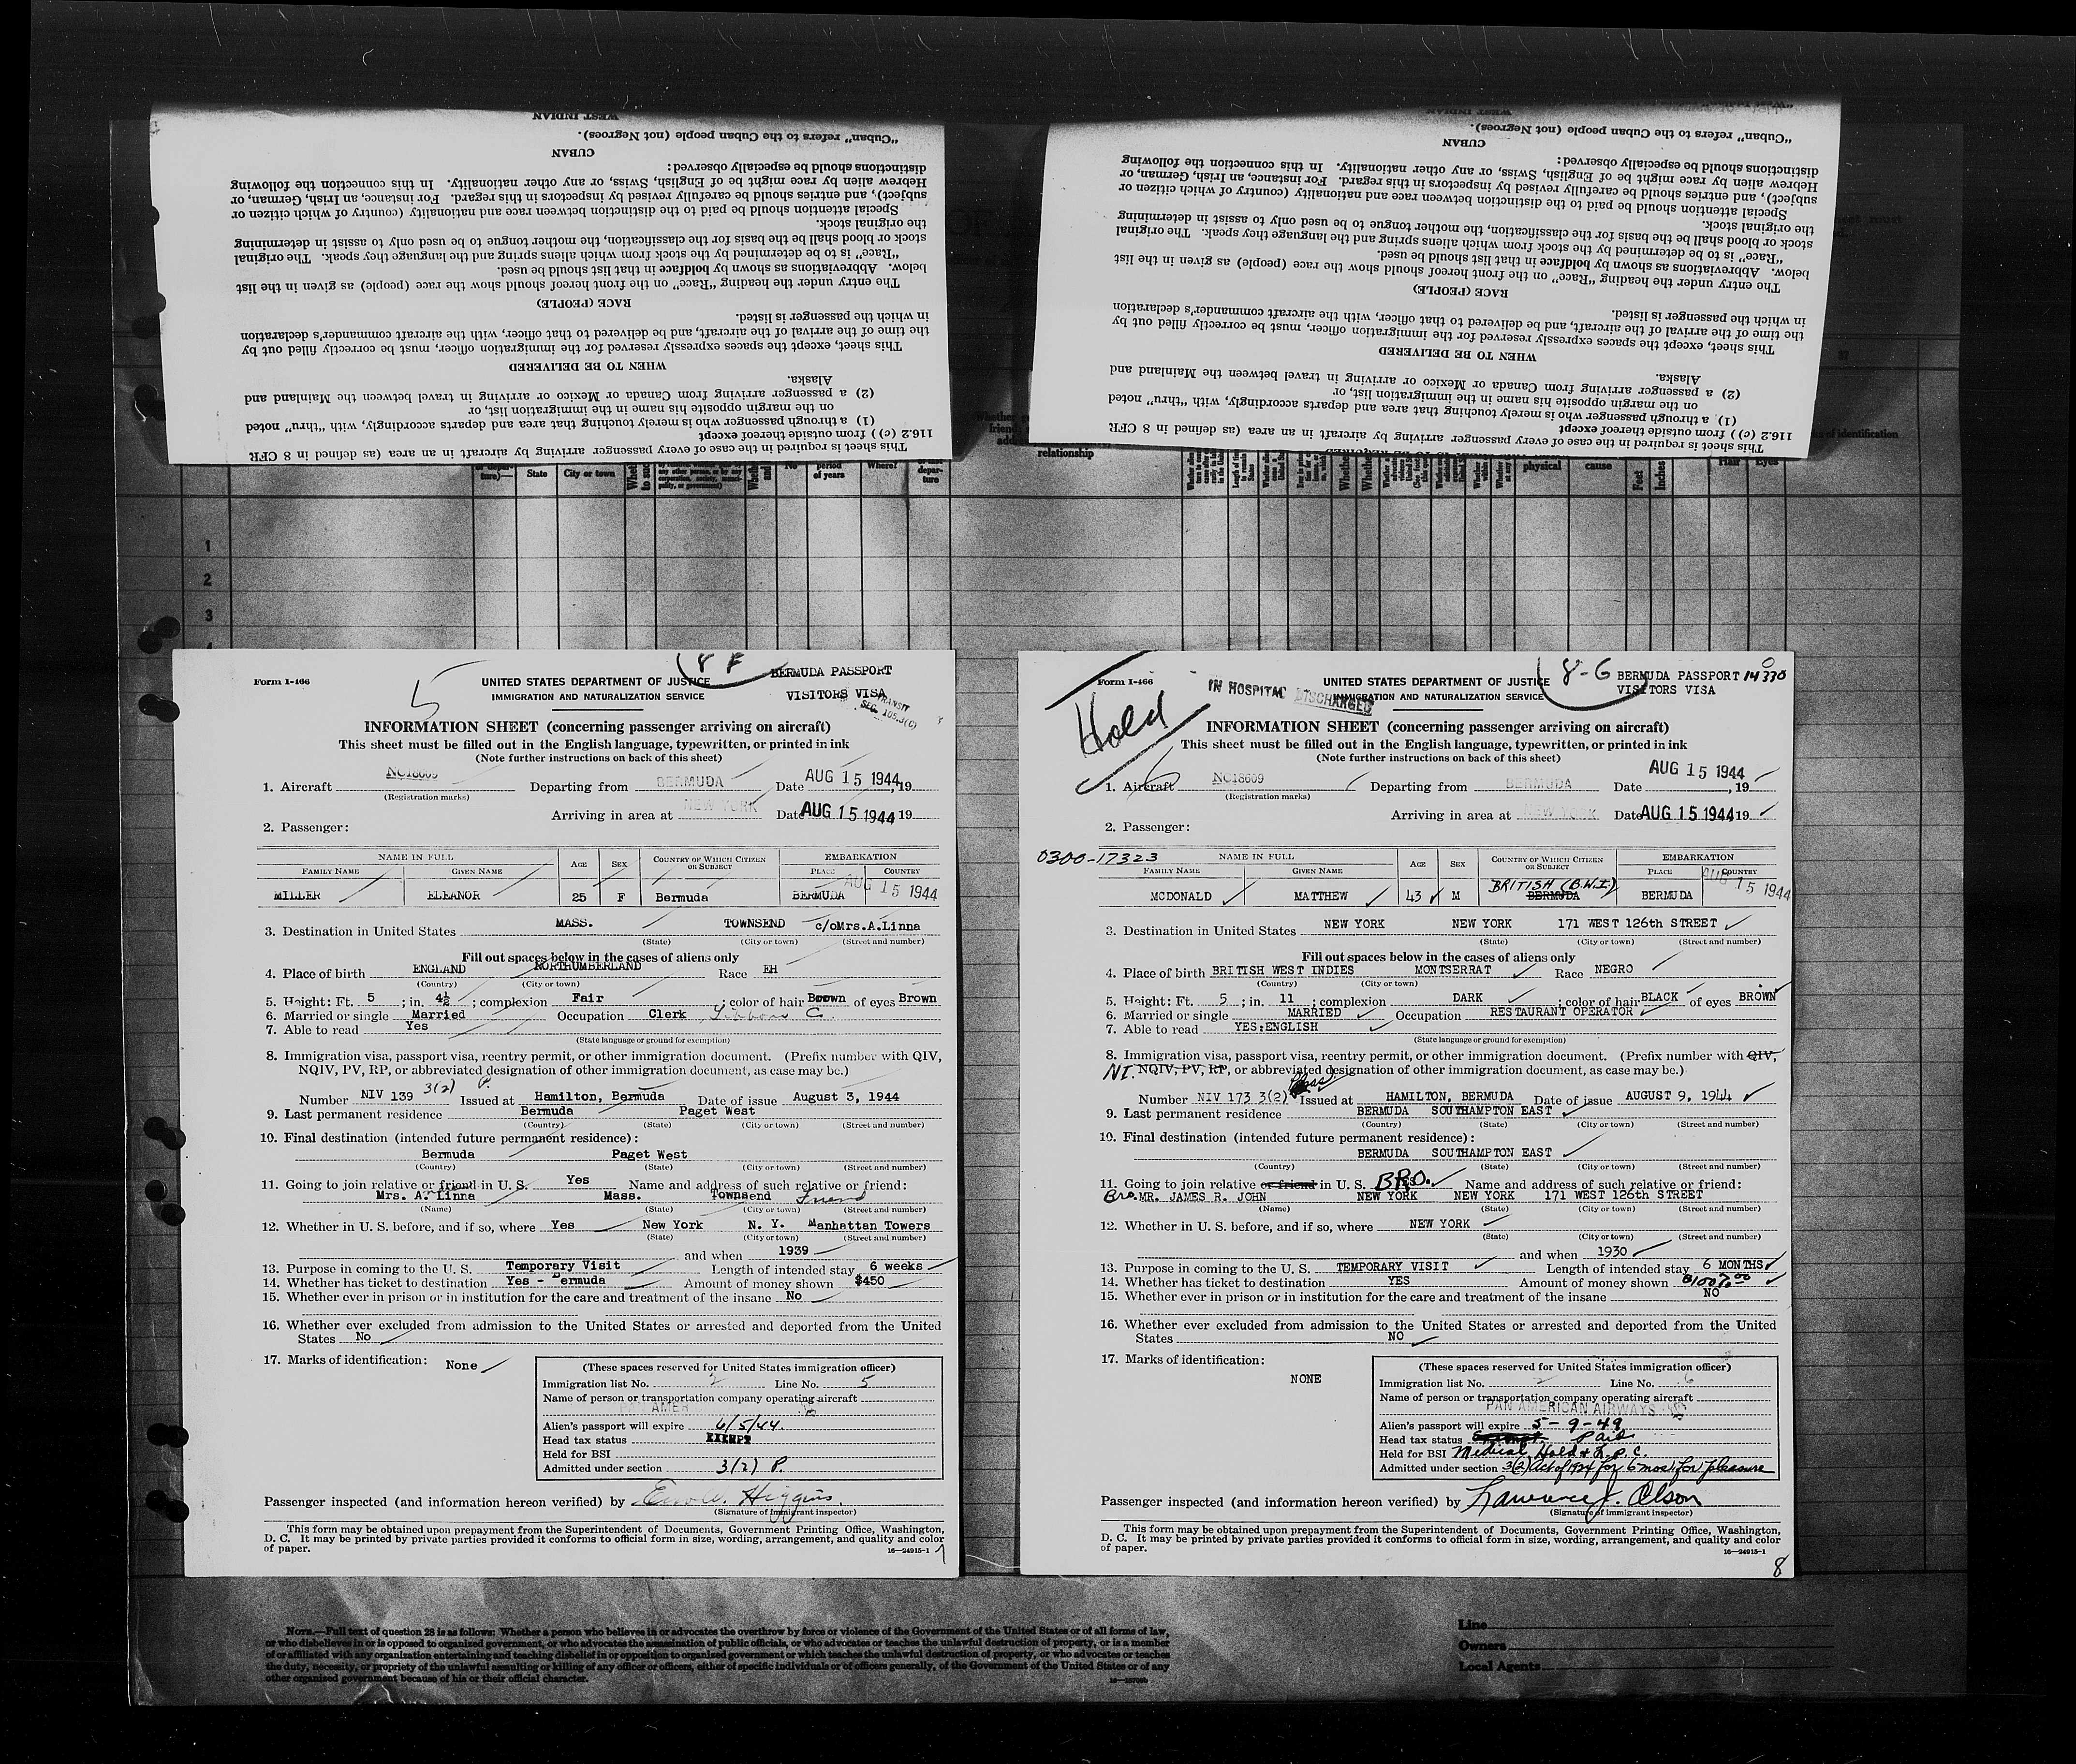 WEST INDIAN
"Cuban" refers to the Cuban people (not Negroes).
CUBAN
distinctions should be especially observed:
Hebrew alien by race might be of English, Swiss, or any other nationality. In this connection the following
subject), and entries should be carefully revised by inspectors in this regard. For instance, an Irish, German, or
Special attention should be paid to the distinction between race and nationality (country of which citizen or
the original stock.
stock or blood shall be the basis for the classification, the mother tongue to be used only to assist in determining
"Race" is to be determined by the stock from which aliens spring and the language they speak. The original
below. Abbreviations as shown by boldface in that list should be used.
The entry under the heading "Race" on the front hereof should show the race (people) as given in the list
RACE (PEOPLE)
in which the passenger is listed.
the time of the arrival of the aircraft, and be delivered to that officer, with the aircraft commander's declaration
This sheet, except the spaces expressly reserved for the immigration officer, must be correctly filled out by
WHEN TO BE DELIVERED
Alaska.
(2) a passenger arriving from Canada or Mexico or arriving in travel between the Mainland and
on the margin opposite his name in the immigration list, or
(1) a through passenger who is merely touching that area and departs accordingly, with "thru" noted
116.2 (c)) from outside thereof except
This sheet is required in the case of every passenger arriving by aircraft in an area (as defined in 8 CFR
WEST INDIAN
"Cuban" refers to the Cuban people (not Negroes).
CUBAN
distinctions should be especially observed:
Hebrew alien by race might be of English, Swiss, or any other nationality. In this connection the following
subject), and entries should be carefully revised by inspectors in this regard. For instance, an Irish, German, or
Special attention should be paid to the distinction between race and nationality (country of which citizen or
the original stock.
stock or blood shall be the basis for the classification, the mother tongue to be used only to assist in determining
"Race" is to be determined by the stock from which aliens spring and the language they speak. The original
below. Abbreviations as shown by boldface in that list should be used.
The entry under the heading "Race" on the front hereof should show the race (people) as given in the list
RACE (PEOPLE)
in which the passenger is listed.
the time of the arrival of the aircraft, and be delivered to that officer, with the aircraft commander's declaration
This sheet, except the spaces expressly reserved for the immigration officer, must be correctly filled out by
WHEN TO BE DELIVERED
Alaska.
(2) a passenger arriving from Canada or Mexico or arriving in travel between the Mainland and
on the margin opposite his name in the immigration list, or
(1) a through passenger who is merely touching that area and departs accordingly, with "thru" noted
116.2 (c)) from outside thereof except
This sheet is required in the case of every passenger arriving by aircraft in an area (as defined in 8 CFR
relationship
State City or town No period of years Where? departure
physical cause Feet Inches Hair Eyes
of identification
1
2
3
5 8 F BERMUDA PASSPORT
Form I-466 UNITED STATES DEPARTMENT OF JUSTICE
IMMIGRATION AND NATURALIZATION SERVICE VISITORS VISA
TRANSIT
SEC. 105.3(C)
INFORMATION SHEET (concerning passenger arriving on aircraft)
This sheet must be filled out in the English language, typewritten, or printed in ink
(Note further instructions on back of this sheet)
1. Aircraft NC18609 Departing from BERMUDA Date AUG 15 1944, 19
(Registration marks)
Arriving in area at NEW YORK Date AUG 15 1944 19
2. Passenger:
NAME IN FULL AGE SEX COUNTRY OF WHICH CITIZEN OR SUBJECT EMBARKATION
FAMILY NAME GIVEN NAME PLACE COUNTRY
AUG 15 1944
MILLER ELEANOR 25 F Bermuda BERMUDA
3. Destination in United States MASS. TOWNSEND c/oMrs.A.Linna
(State) (City or town) (Street and number)
Fill out spaces below in the cases of aliens only
4. Place of birth ENGLAND NORTHUMBERLAND Race EH
(Country) (City or town)
5. Height: Ft. 5 ; in. 4½ ; complexion Fair ; color of hair Brown of eyes Brown
6. Married or single Married Occupation Clerk
7. Able to read Yes
(State language or ground for exemption)
8. Immigration visa, passport visa, reentry permit, or other immigration document. (Prefix number with QIV,
NQIV, PV, RP, or abbreviated designation of other immigration document, as case may be.)
Number NIV 139 3(2) P. Issued at Hamilton, Bermuda Date of issue August 3, 1944
9. Last permanent residence Bermuda Paget West
(Country) (State) (City or town) (Street and number)
10. Final destination (intended future permanent residence):
Bermuda Paget West
(Country) (State) (City or town) (Street and number)
11. Going to join relative or friend in U. S. Yes Name and address of such relative or friend:
Mrs. A. Linna Mass. Townsend Friend
(Name) (State) (City or town) (Street and number)
12. Whether in U. S. before, and if so, where Yes New York N. Y. Manhattan Towers
(State) (City or town) (Street and number)
and when 1939
13. Purpose in coming to the U. S. Temporary Visit Length of intended stay 6 weeks
14. Whether has ticket to destination Yes - Bermuda Amount of money shown $450
15. Whether ever in prison or in institution for the care and treatment of the insane No
16. Whether ever excluded from admission to the United States or arrested and deported from the United
States No
17. Marks of identification: None
(These spaces reserved for United States immigration officer)
Immigration list No. 2 Line No. 5
Name of person or transportation company operating aircraft
PAN AMER
Alien's passport will expire 6/5/44
Head tax status EXEMPT
Held for BSI
Admitted under section 3(2) P.
Passenger inspected (and information hereon verified) by Higgins
(Signature of immigrant inspector)
This form may be obtained upon prepayment from the Superintendent of Documents, Government Printing Office, Washington,
D. C. It may be printed by private parties provided it conforms to official form in size, wording, arrangement, and quality and color
of paper. 16—24915-1
7
Hold IN HOSPITAL DISCHARGED 8-G BERMUDA PASSPORT 14330
Form I-466 UNITED STATES DEPARTMENT OF JUSTICE VISITORS VISA
IMMIGRATION AND NATURALIZATION SERVICE
INFORMATION SHEET (concerning passenger arriving on aircraft)
This sheet must be filled out in the English language, typewritten, or printed in ink
(Note further instructions on back of this sheet)
6 AUG 15 1944
1. Aircraft NC18609 Departing from BERMUDA Date , 19
(Registration marks)
Arriving in area at NEW YORK Date AUG 15 1944 19
2. Passenger:
0300-17323
NAME IN FULL AGE SEX COUNTRY OF WHICH CITIZEN OR SUBJECT EMBARKATION
FAMILY NAME GIVEN NAME PLACE COUNTRY
BRITISH (B.W.I) AUG 15 1944
MCDONALD MATTHEW 43 M BERMUDA BERMUDA
3. Destination in United States NEW YORK NEW YORK 171 WEST 126th STREET
(State) (City or town) (Street and number)
Fill out spaces below in the cases of aliens only
4. Place of birth BRITISH WEST INDIES MONTSERRAT Race NEGRO
(Country) (City or town)
5. Height: Ft. 5 ; in. 11 ; complexion DARK ; color of hair BLACK of eyes BROWN
6. Married or single MARRIED Occupation RESTAURANT OPERATOR
7. Able to read YES:ENGLISH
(State language or ground for exemption)
8. Immigration visa, passport visa, reentry permit, or other immigration document. (Prefix number with QIV,
NI. NQIV, PV, RP, or abbreviated designation of other immigration document, as case may be.)
Number NIV 173 3(2) Issued at HAMILTON, BERMUDA Date of issue AUGUST 9, 1944
9. Last permanent residence BERMUDA SOUTHAMPTON EAST
(Country) (State) (City or town) (Street and number)
10. Final destination (intended future permanent residence):
BERMUDA SOUTHAMPTON EAST
(Country) (State) (City or town) (Street and number)
11. Going to join relative or friend in U. S. BRO. Name and address of such relative or friend:
Bro. MR. JAMES R. JOHN NEW YORK NEW YORK 171 WEST 126th STREET
(Name) (State) (City or town) (Street and number)
12. Whether in U. S. before, and if so, where NEW YORK
(State) (City or town) (Street and number)
and when 1930
13. Purpose in coming to the U. S. TEMPORARY VISIT Length of intended stay 6 MONTHS
14. Whether has ticket to destination YES Amount of money shown
15. Whether ever in prison or in institution for the care and treatment of the insane NO
16. Whether ever excluded from admission to the United States or arrested and deported from the United
States NO
17. Marks of identification:
NONE
(These spaces reserved for United States immigration officer)
Immigration list No. 2 Line No. 6
Name of person or transportation company operating aircraft
PAN AMERICAN AIRWAYS
Alien's passport will expire 5-9-49
Head tax status Paid
Held for BSI Medical Hold & L.P.C.
Admitted under section 3(2) Act of 1924 for 6 mos. for pleasure
Passenger inspected (and information hereon verified) by Lawrence J. Olson
(Signature of immigrant inspector)
This form may be obtained upon prepayment from the Superintendent of Documents, Government Printing Office, Washington,
D. C. It may be printed by private parties provided it conforms to official form in size, wording, arrangement, and quality and color
of paper. 16—24915-1
8
NOTE.—Full text of question 28 is as follows: Whether a person who believes in or advocates the overthrow by force or violence of the Government of the United States or of all forms of law,
or who disbelieves in or is opposed to organized government, or who advocates the assassination of public officials, or who advocates or teaches the unlawful destruction of property, or is a member
of or affiliated with any organization entertaining and teaching disbelief in or opposition to organized government or which teaches the unlawful destruction of property, or who advocates or teaches
the duty, necessity, or propriety of the unlawful assaulting or killing of any officer or officers, either of specific individuals or of officers generally, of the Government of the United States or of any
other organized government because of his or their official character.
Line
Owners
Local Agents